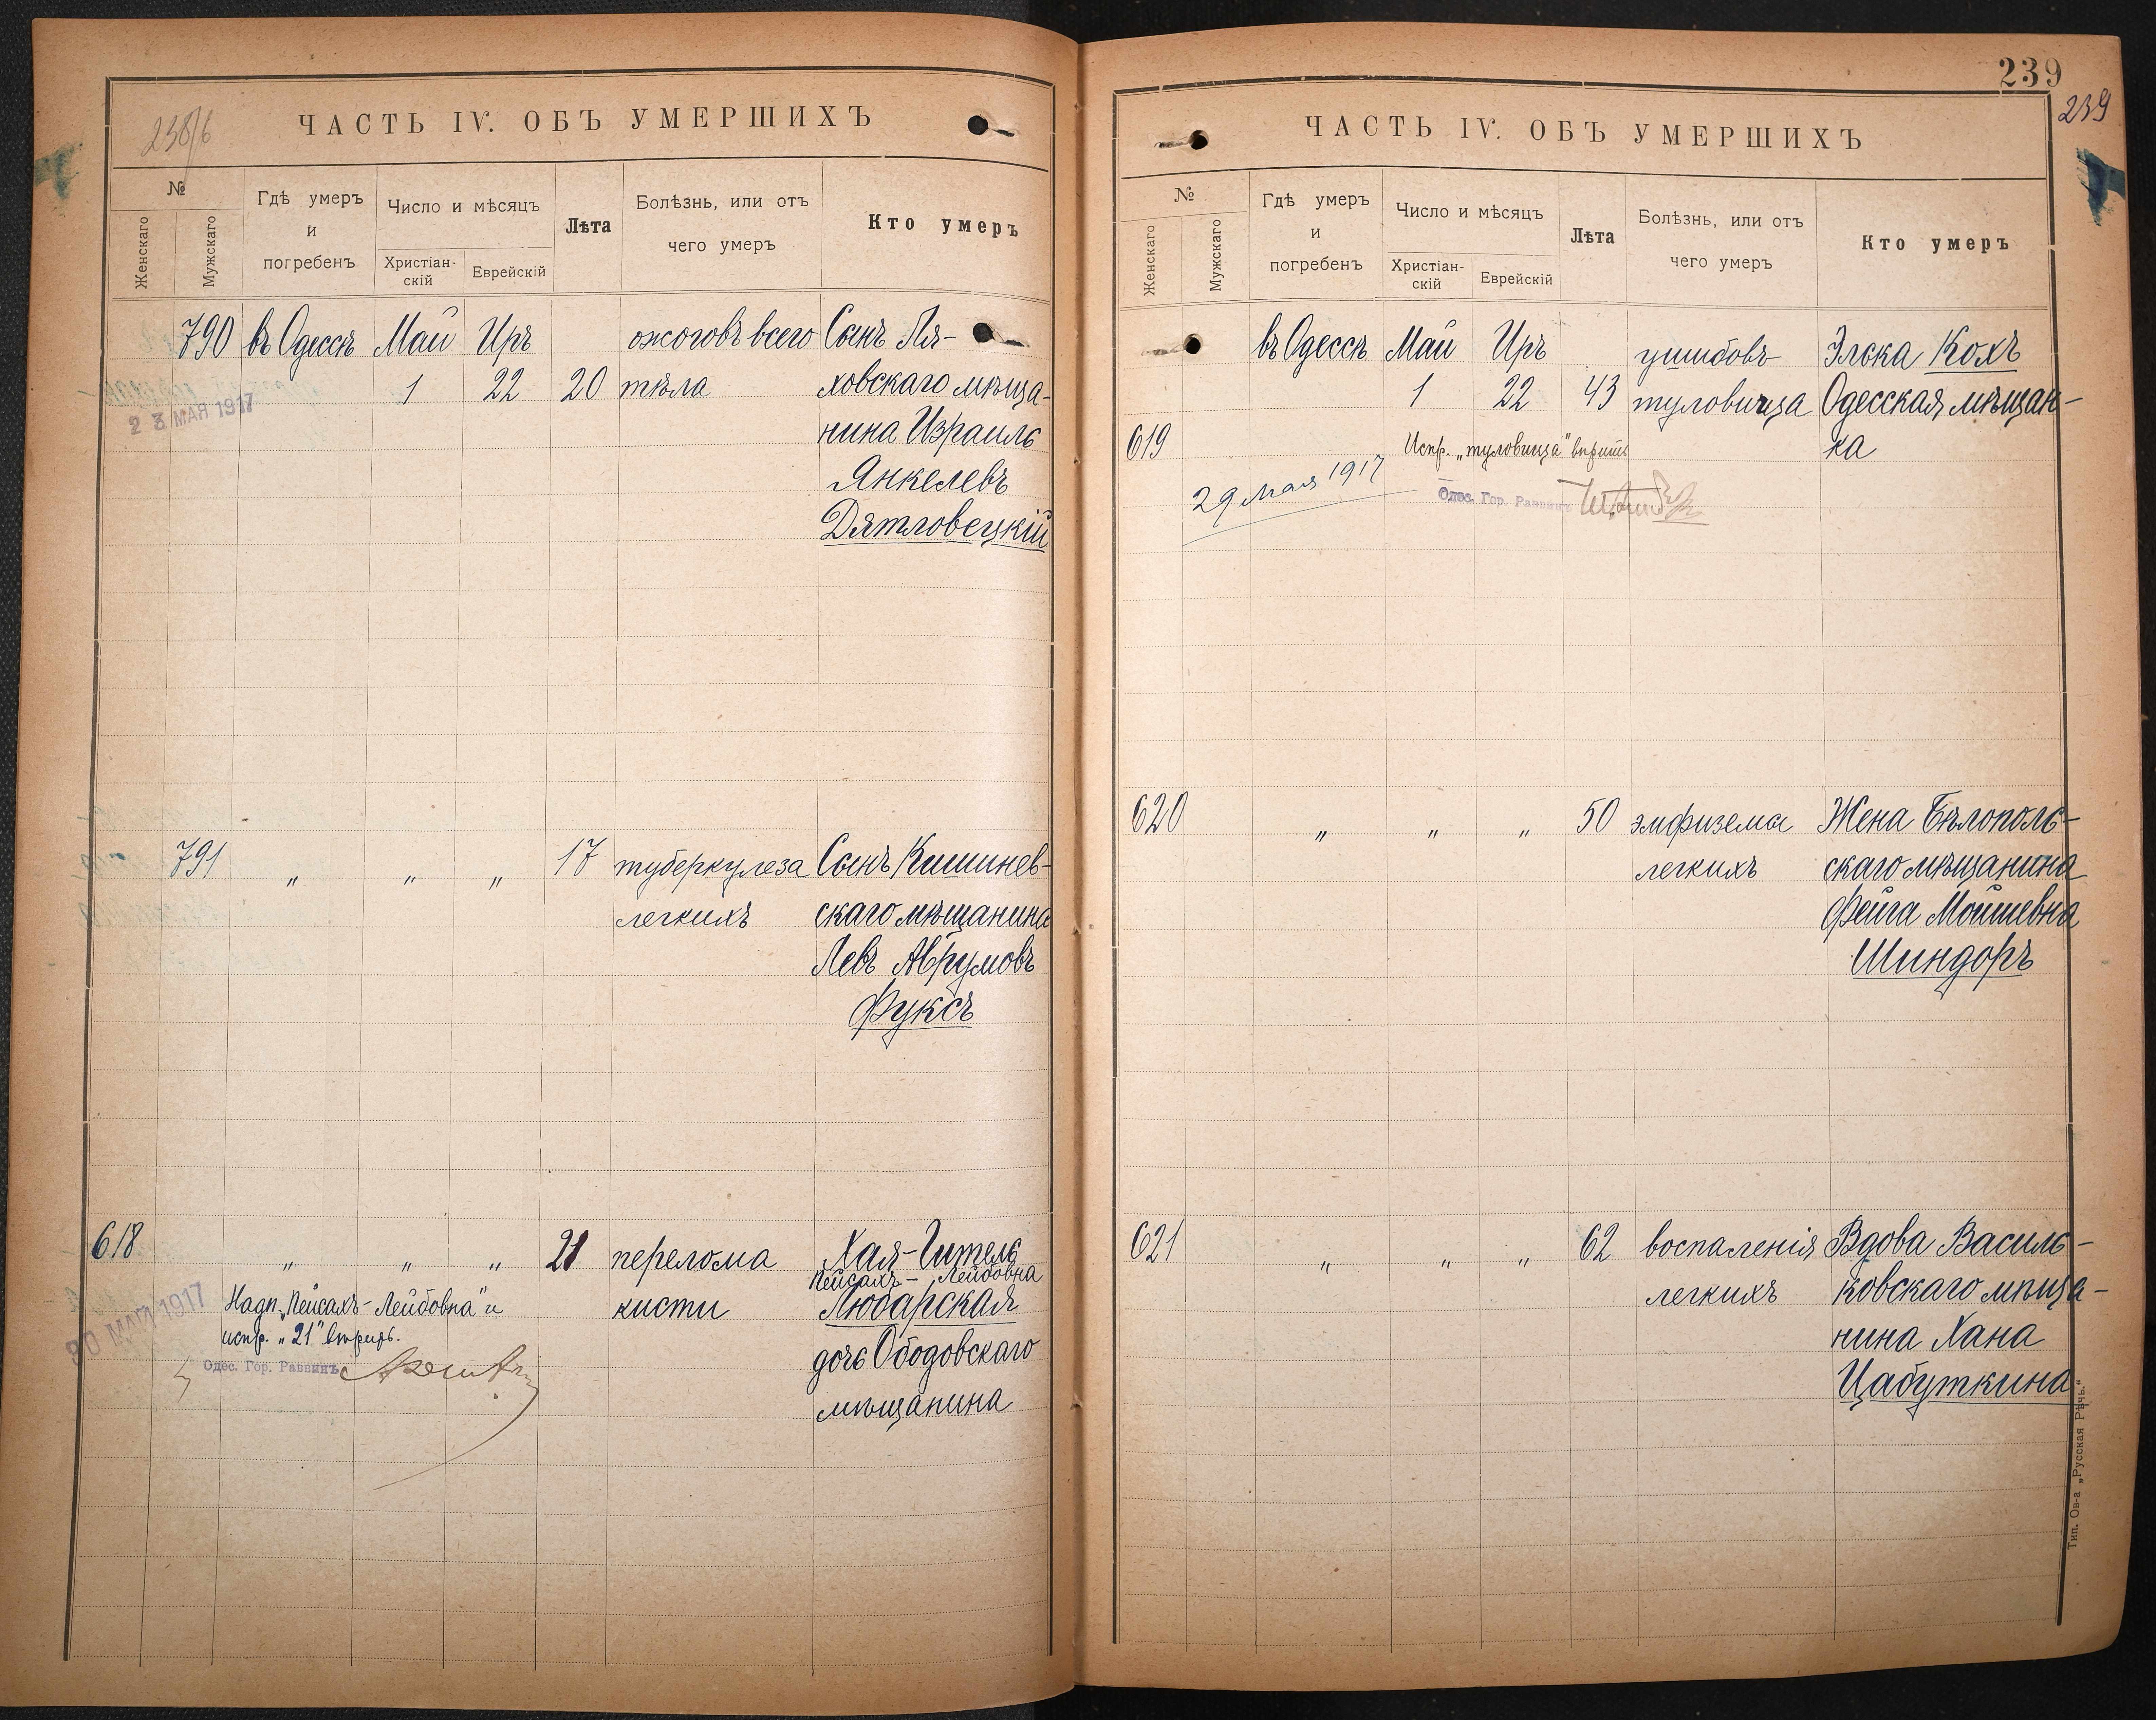 238/б
ЧАСТЬ IV. ОБЪ УМЕРШИХЪ
№
Женскаго
Мужскаго
Гдѣ умеръ
и
погребенъ
Число и мѣсяцъ
Христіан-
скій
Еврейскій
Лѣта
Болѣзнь, или отъ
чего умеръ
Кто умеръ
790 въ Одессѣ Май Иръ ожоговъ всего Сынъ Ля-
1 22 20 тѣла ховскаго мѣща-
23 МАЯ 1917
нина Израиль
Янкелевъ
Дятловецкій
791 " " " 17 туберкулеза Сынъ Кишинев-
легкихъ скаго мѣщанина
Левъ Аврумовъ
Фуксъ
618 " " " 21 перелома Хая-Гитель
Пейсахъ-Лейбовна
кисти Любарская
Надп. „Пейсахъ-Лейбовна" и
испр. „21" вѣрить.
30 МАЙ 1917
Одес. Гор. Раввинъ
дочь Ободовскаго
мѣщанина
239
239
ЧАСТЬ IV. ОБЪ УМЕРШИХЪ
№
Женскаго
Мужскаго
Гдѣ умеръ
и
погребенъ
Число и мѣсяцъ
Христіан-
скій
Еврейскій
Лѣта
Болѣзнь, или отъ
чего умеръ
Кто умеръ
въ Одессѣ Май Иръ ушибовъ Элька Кохъ
1 22 43 туловища Одесская мѣщан-
619 ка
Испр. „туловища" вѣрить
29 мая 1917
Одес. Гор. Раввинъ
620 " " " 50 эмфизема Жена Бѣлополь-
легкихъ скаго мѣщанина
Фейга Мойшевна
Шиндоръ
621 " " " 62 воспаленія Вдова Василь-
легкихъ ковскаго мѣща-
нина Хана
Цабуткина
Тип. Ов-а „Русская Рѣчь."